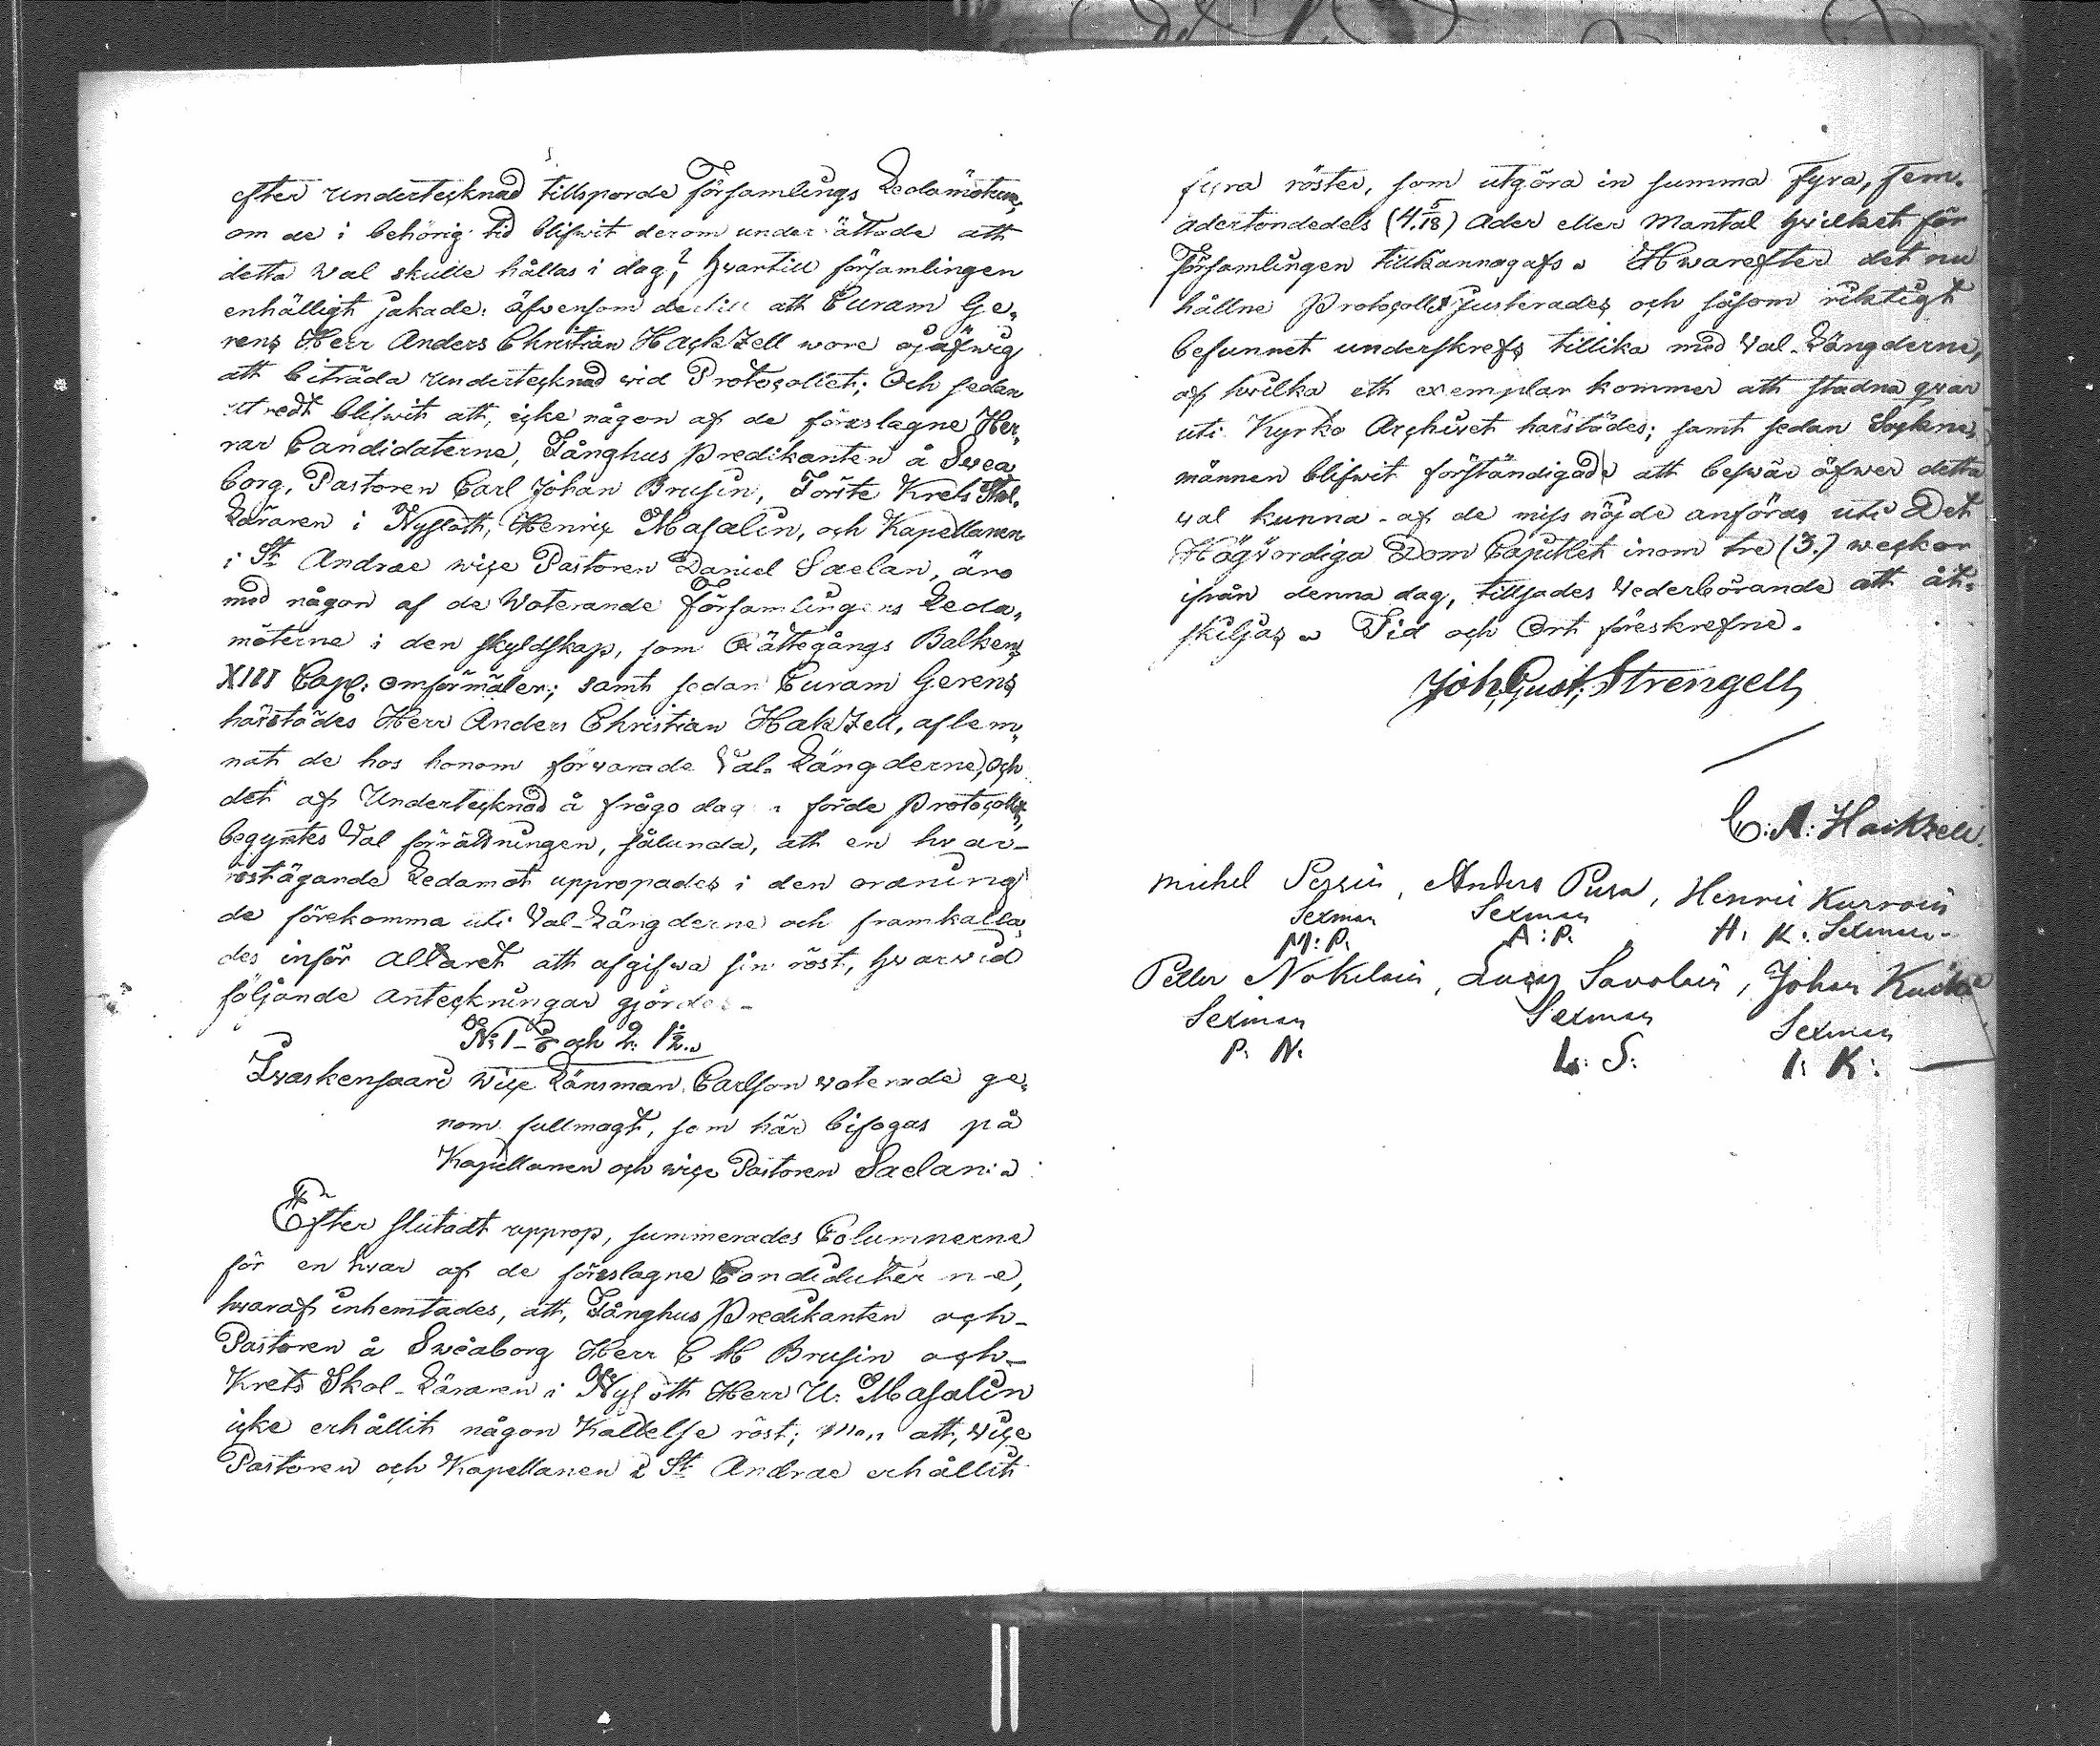 efter undertecknad tillsporde Församlings Ledamöterne,
om de i behörig tid blifwit derom underrättade att
detta Wal skulle hållas i dag? hwartill församlingen
enhälligt jakade: äfvensom dertill att Curam Ge,
rens Herr Anders Christian Hackzell wore ojäfwig
att biträda undertecknad wid Protocollet; Och sedan
utredt blifwit att, icke någon af de föreslagne Her,
rar Candidaterne, Fånghus Predikanten å Svea
borg, Pastoren Carl Johan Brusin, Förste Krets Skol-
Läraren i Nyslott, Henric Masalin, och Kapellanen
i St Andrae wice Pastoren Daniel Saelan, äro
med någon af de Woterande Församlingens Leda,
möterne i den skyldskap, som Rättegångs Balkens
XIII Cap: omförmäler; samt sedan Curam Gerens
härstädes Herr Anders Christian Hakzell, aflem,
nat de hos honom förvarade Val-Längderne, och
det af Undertecknad å frågo dag förde Protocollet,
begyntes Val förrättningen, sålunda, att en hvar-
röstägande Ledamot uppropades i den ordning
de förekomma uti Val-Längderne och framkalla,
des inför Altaret att afgifwa sin röst, hwarvid
följande anteckningar gjordes-
No 1- och 2: 1/2.
Ivaskensaari wice Länsman Carlson voterade ge,
nom fullmagt, som här bifogas på
Kapellanen och wice Pastoren Saelan:
Efter slutadt upprop, summerades Columnerne
för en hvar af de föreslagne Candidaterne,
hvaraf inhemtades, att, Fånghus Predikanten och-
Pastoren å Sweaborg Herr C Brusin och-
Krets Skol-Läraren i Nyslott Herr Masalin
icke erhållit någon Kallelse röst; men att, wice
Pastoren och Kapellanen i St Andrae erhållit
fyra röster, som utgöra in summa Fyra, fem-
adertondedels (4.5/18) Ader eller Mantal hvilket för
Församlingen tillkännagafs. Hwarefter det nu
hållne Protocollet Justerades och såsom riktigt
befunnet underskrefs tillika med Val-Längderne,
af hwilka ett exemplar kommer att stadna qvar
uti Kyrko Archivet härstädes; samt sedan Sockne,
männen blifwit förständigade att beswär öfwer detta
val kunna af de missnöjde anföras uti Det
Högvördiga Dom Capitlet inom tre (3.) weckor
ifrån denna dag, tillsades Vederbörande att åt-
skiljas. Tid och Ort föreskrefne.
Joh. Gust. Strengell
C: A: Hackzell.
Michel , Anders Pura, Henric Kurroin
Sexman Sexman
M: P. A: P. H. K: Sexman-
Petter Nokelain, Savolain, Johan
Sexman Sexman Sexman
P. N. L: S: I: K: